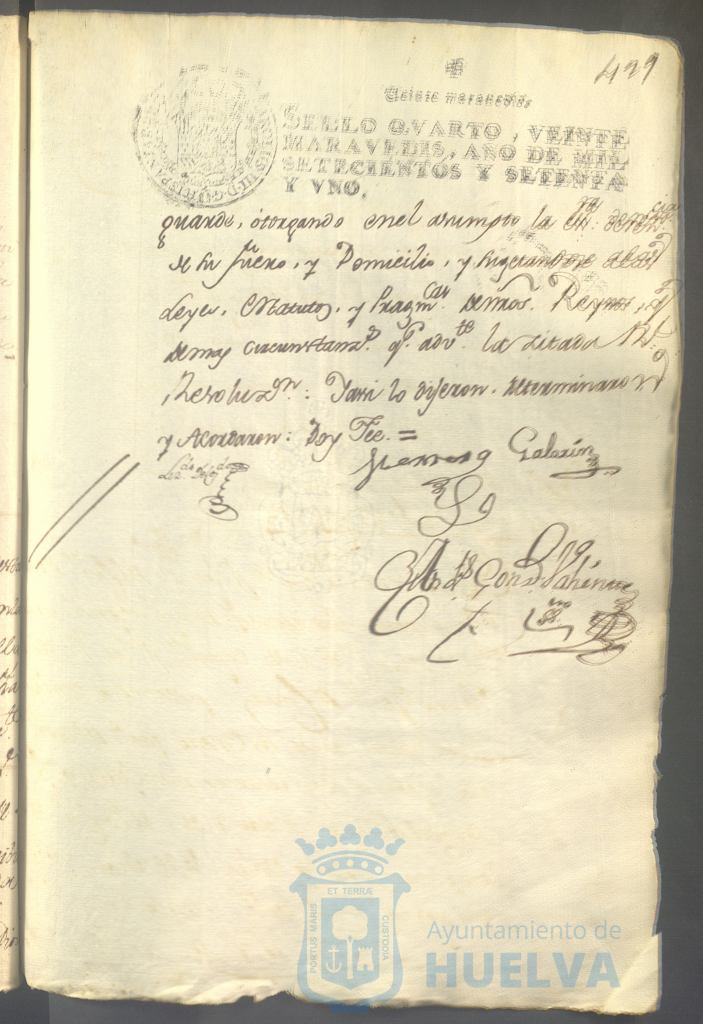 499
Veinte maravedis
SELLO QVARTO, VEINTE
MARAVEDIS, AÑO DE MIL
SETECIENTOS Y SETENTA
Y VNO.
guarde, otorgando en el asumpto la
de su fuero, y Domicilio, y sugetandose
Leyes, estatutos, y Pragm.cas de Reynos,
demas circunstanz.s q.e adv.te la citada Rl.
Resoluz.on: Y asi lo dijeron, determinaron
y Acordaron: Doy Fee. =
Herrera Galazin
ET TERRÆ
PORTUS MARIS
CUSTODIA
Ayuntamiento de
HUELVA